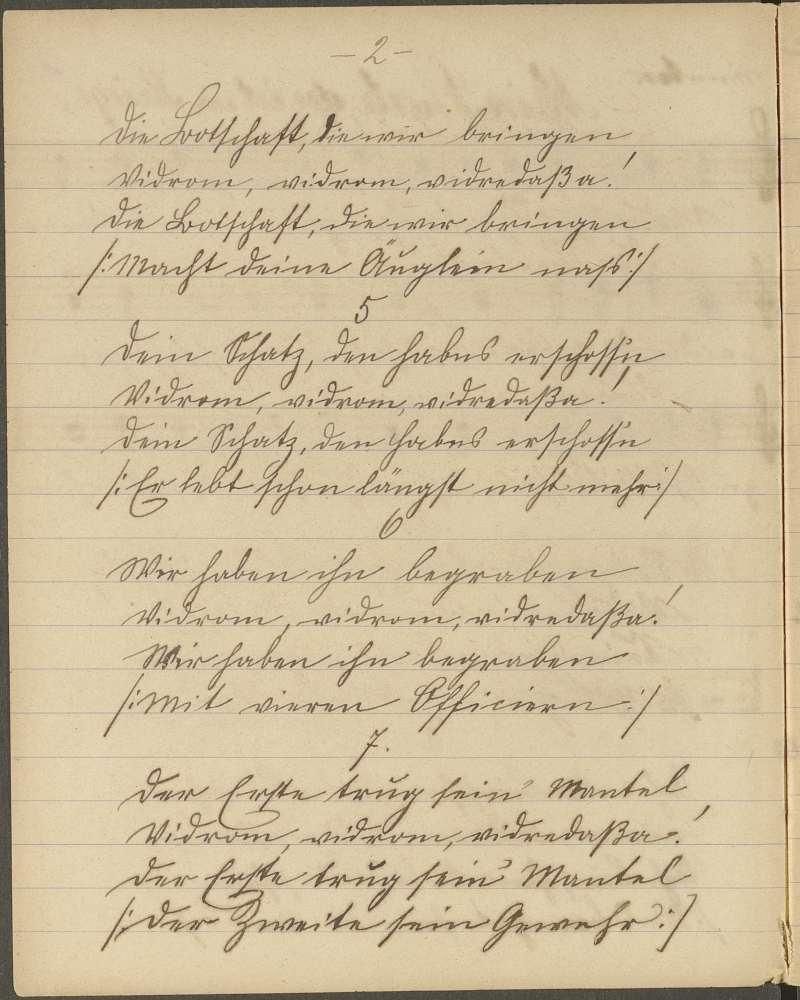 – 2 –
Die Botschaft, die wir bringen,
Vidrom, vidrom, vidredaßa!
Die Botschaft, die wir bringen
/: Macht deine Äuglein nass :/
5
Dein Schatz, den habns erschoss'n,
Vidrom, vidrom, vidredaßa!
Dein Schatz, den habns erschoss'n
/: Er lebt schon längst nicht mehr :/
6
Wir haben ihn begraben,
Vidrom, vidrom, vidredaßa!
Wir haben ihn begraben
/: Mit vieren Officiern :/
7.
Der Erste trug sein' Mantel,
Vidrom, vidrom, vidredaßa!
Der Erste trug sein' Mantel
/: Der Zweite sein Gewehr :/